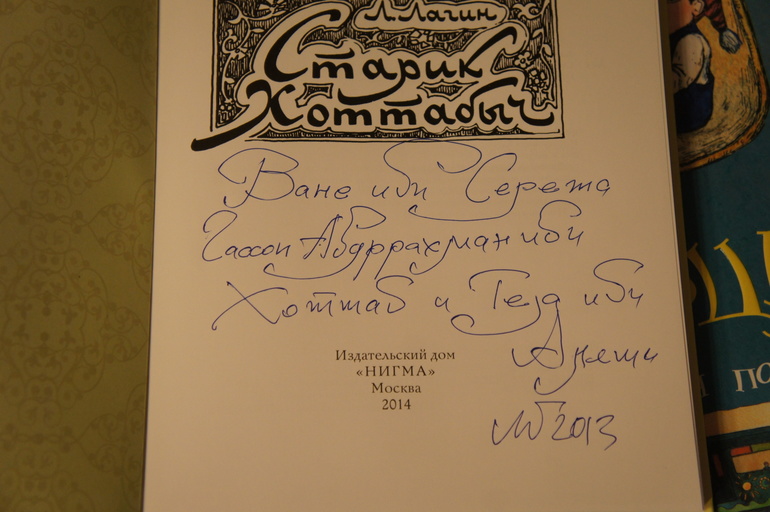 Л. Лагин
Старик
Хоттабыч
Ване ибн Сережа
Гассан Абдуррахман ибн
Хоттаб и Геза ибн
Издательский дом
«НИГМА»
Москва
2014
2013